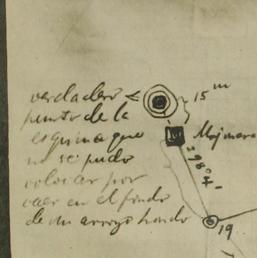 verdadero
punto de la
esquina que
no se pudo
colocar por
caer en el fondo
de un arroyo hondo
15 m
M
Mojonera
298° 4'
19